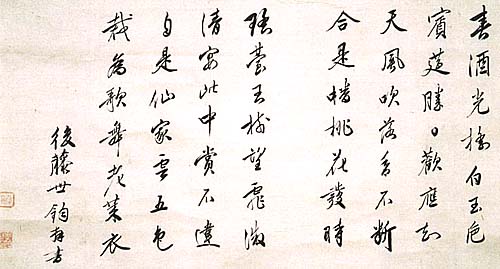 春酒光搖白玉卮
賓莚勝日歡應知
天風吹落香不斷
合是蟠桃花發時
瑤臺玉樹望霏微
清宴此中賞不違
自是仙家雲五色
裁為歌舞老萊衣
後藤世鈞拜書